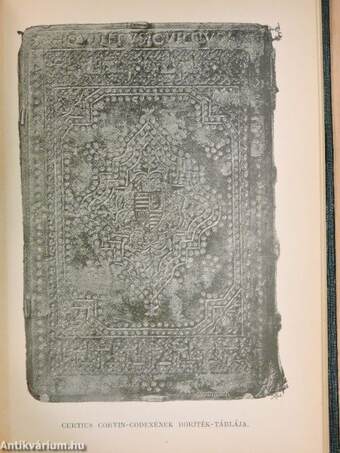 CURTIUS CORVIN-CODEXÉNEK BORITÉK-TÁBLÁJA.
Antikvárium.hu